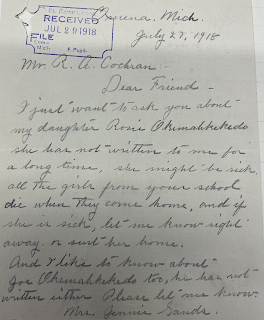 RECEIVED
JUL 29 1918
FILE
Mich.
July 27, 1918
Mr. R. A. Cochran
Dear Friend -
I just want to ask you about
my daughter Rosie
she has not written to me for
a long time, she might be sick,
all the girls from your school
die when they come home, and if
she is sick, let me know right
away. or sent her home.
And I like to know about
Joe too, he has not
written either Please let me know.
Mrs. Jennie Sands.